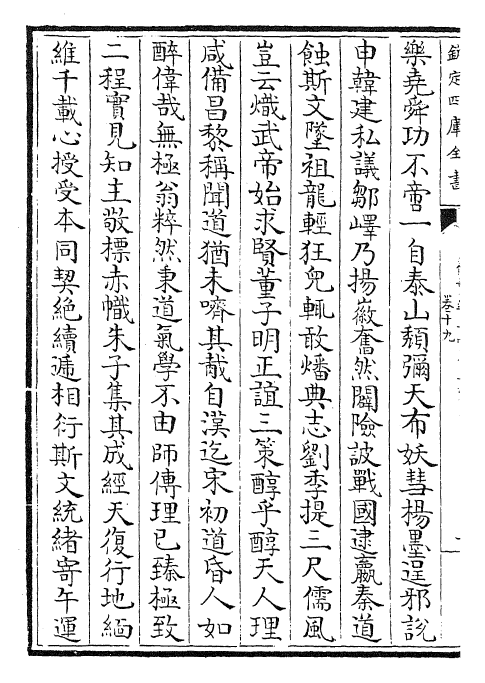 欽定四庫全書
卷十九
樂堯舜功不啻一自泰山頽彌天布妖彗楊墨逞邪說
申韓建私議鄒嶧乃揚徽奮然闢險詖戰國逮嬴秦道
蝕斯文墜祖龍輕狂兇輒敢燔典志劉季提三尺儒風
豈云熾武帝始求賢董子明正誼三策醇乎醇天人理
咸備昌黎稱聞道猶未嚌其胾自漢迄宋初道昏人如
醉偉哉無極翁粹然秉道氣學不由師傳理已臻極致
二程實見知主敬標赤幟朱子集其成經天復行地緬
維千載心授受本同契絶續遞相衍斯文統緒寄午運